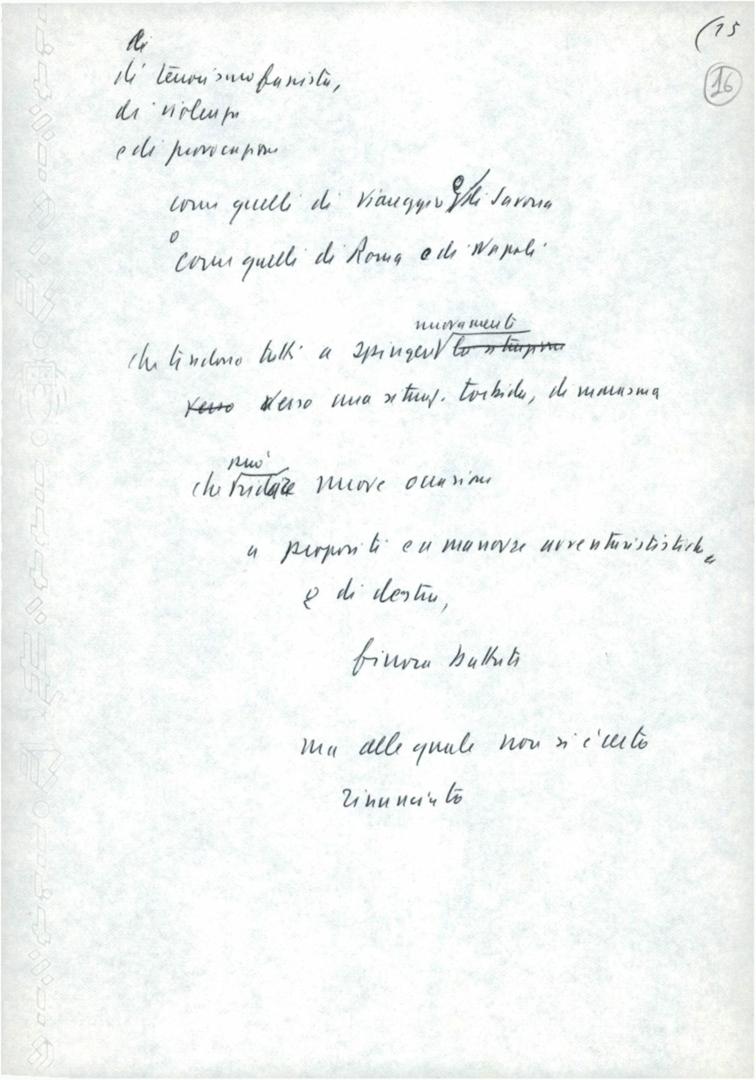 (15
16
di
di terrorismo fascista,
di violenza
e di provocazione
come quelli di Viareggio o di Savona
o
come quelli di Roma e di Napoli
nuovamente
che tendono tutti a spingere la situazione
verso verso una situaz. torbida, di marasma
può
che ridare nuove occasioni
a propositi e a manovre avventuristiche
e di destra,
finora battuti
ma alle quale non si è certo
rinunciato